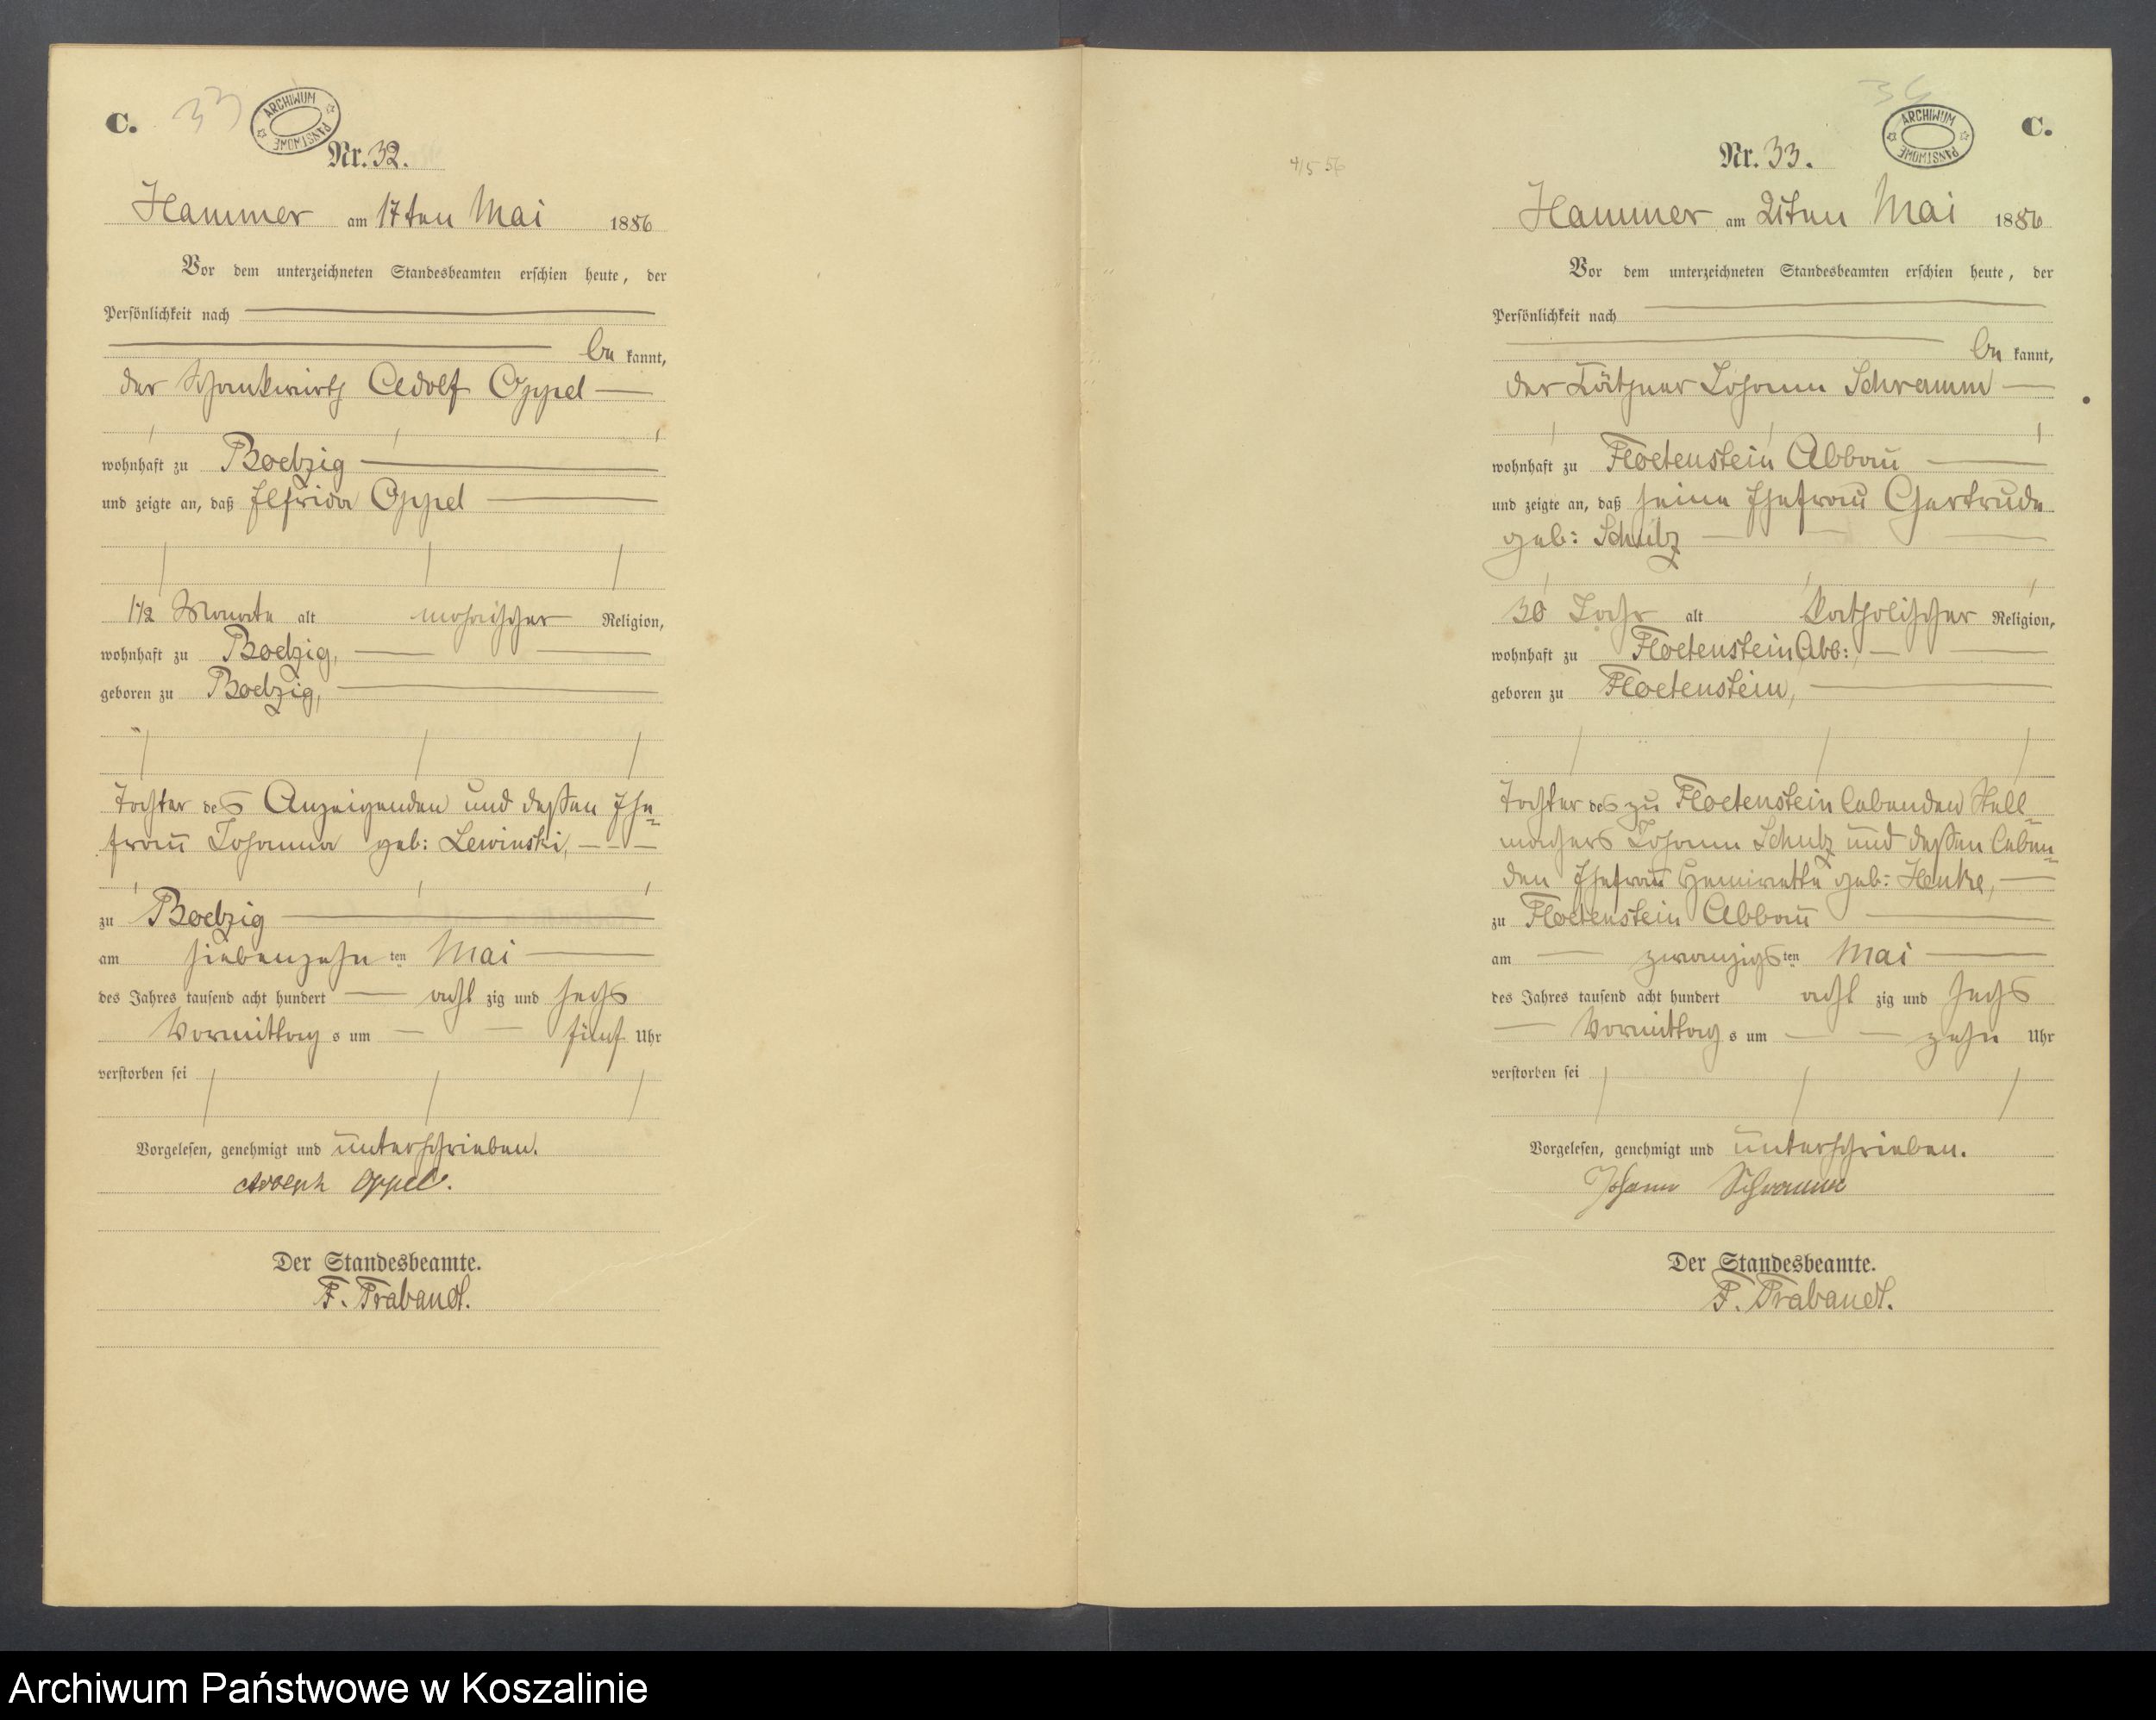 C. 33
ARCHIWUM PAŃSTWOWE
Nr. 32.
Hammer am 17ten Mai 1886
Vor dem unterzeichneten Standesbeamten erschien heute, der
Persönlichkeit nach
be kannt,
der Schankwirth Adolf Oppel
wohnhaft zu Boetzig
und zeigte an, daß Elfrida Oppel
1 1/2 Monate alt mosaischer Religion,
wohnhaft zu Boetzig,
geboren zu Boetzig,
Tochter des Anzeigenden und dessen Ehe=
frau Johanna geb: Lewinski,
zu Boetzig
am siebenzehn ten Mai
des Jahres tausend acht hundert acht zig und sechs
Vormittag s um fünf Uhr
verstorben sei
Vorgelesen, genehmigt und unterschrieben.
Adolph Oppel.
Der Standesbeamte.
F. Trabandt.
4/5 56
34
C.
ARCHIWUM PAŃSTWOWE
Nr. 33.
Hammer am 21ten Mai 1886
Vor dem unterzeichneten Standesbeamten erschien heute, der
Persönlichkeit nach
be kannt,
der Käthner Johann Schramm
wohnhaft zu Floetenstein Abbau
und zeigte an, daß seine Ehefrau Gertrude
geb: Schulz
30 Jahr alt katholischer Religion,
wohnhaft zu Floetenstein Abb:,
geboren zu Floetenstein,
Tochter des zu Floetenstein lebenden Stell=
machers Johann Schulz und dessen leben=
den Ehefrau Henriette geb: Henke,
zu Floetenstein Abbau
am zwanzigs ten Mai
des Jahres tausend acht hundert acht zig und sechs
Vormittag s um zehn Uhr
verstorben sei
Vorgelesen, genehmigt und unterschrieben.
Johann Schramm
Der Standesbeamte.
F. Trabandt.
Archiwum Państwowe w Koszalinie